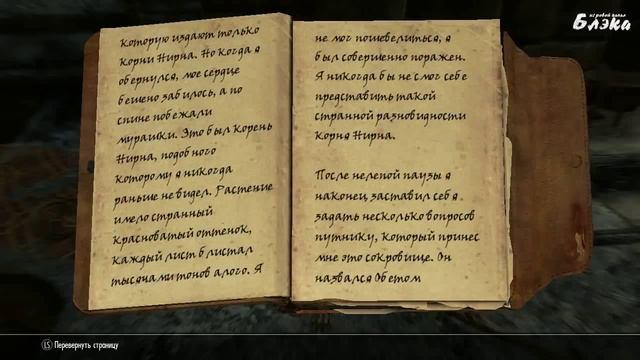 игровой канал
Блэка
которую издают только
корни Нирна. Но когда я
обернулся, мое сердце
бешено забилось, а по
спине побежали
мурашки. Это был корень
Нирна, подобного
которому я никогда
раньше не видел. Растение
имело странный
красноватый оттенок,
каждый лист блистал
тысячами тонов алого. Я
не мог пошевелиться, я
был совершенно поражен.
Я никогда бы не смог себе
представить такой
странной разновидности
корня Нирна.
После нелепой паузы я
наконец заставил себя
задать несколько вопросов
путнику, который принес
мне это сокровище. Он
назвался Обетом
LS Перевернуть страницу